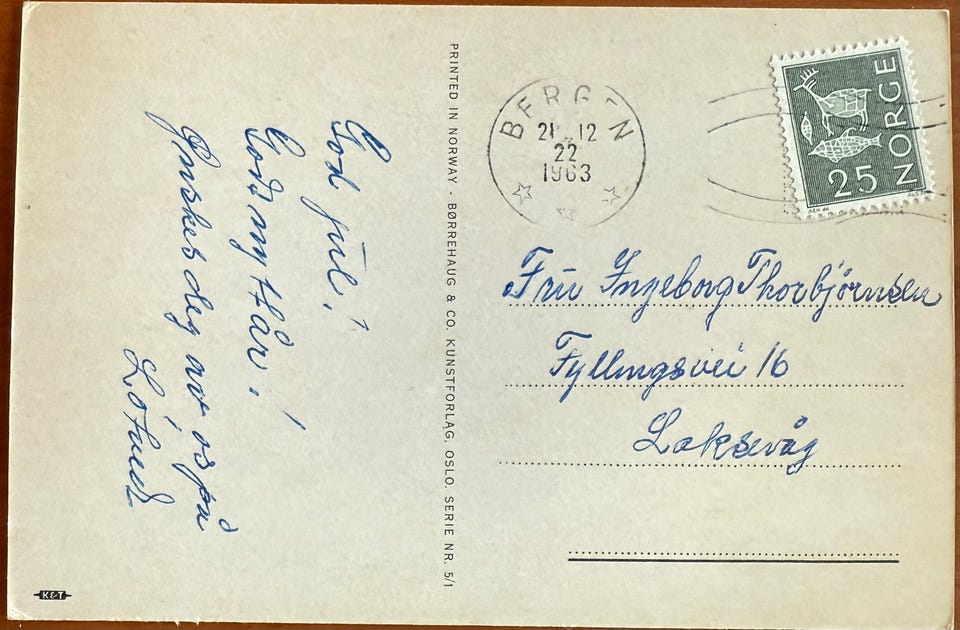 God jul!
Godt nytt år!
Ønskes deg av os på
PRINTED IN NORWAY · BØRREHAUG & CO. KUNSTFORLAG, OSLO. SERIE NR. 5/1
K&T
BERGEN
21 12
22
1963
NORGE
25
Fru Ingeborg Thorbjørnsen
Fyllingsvei 16
Laksevåg